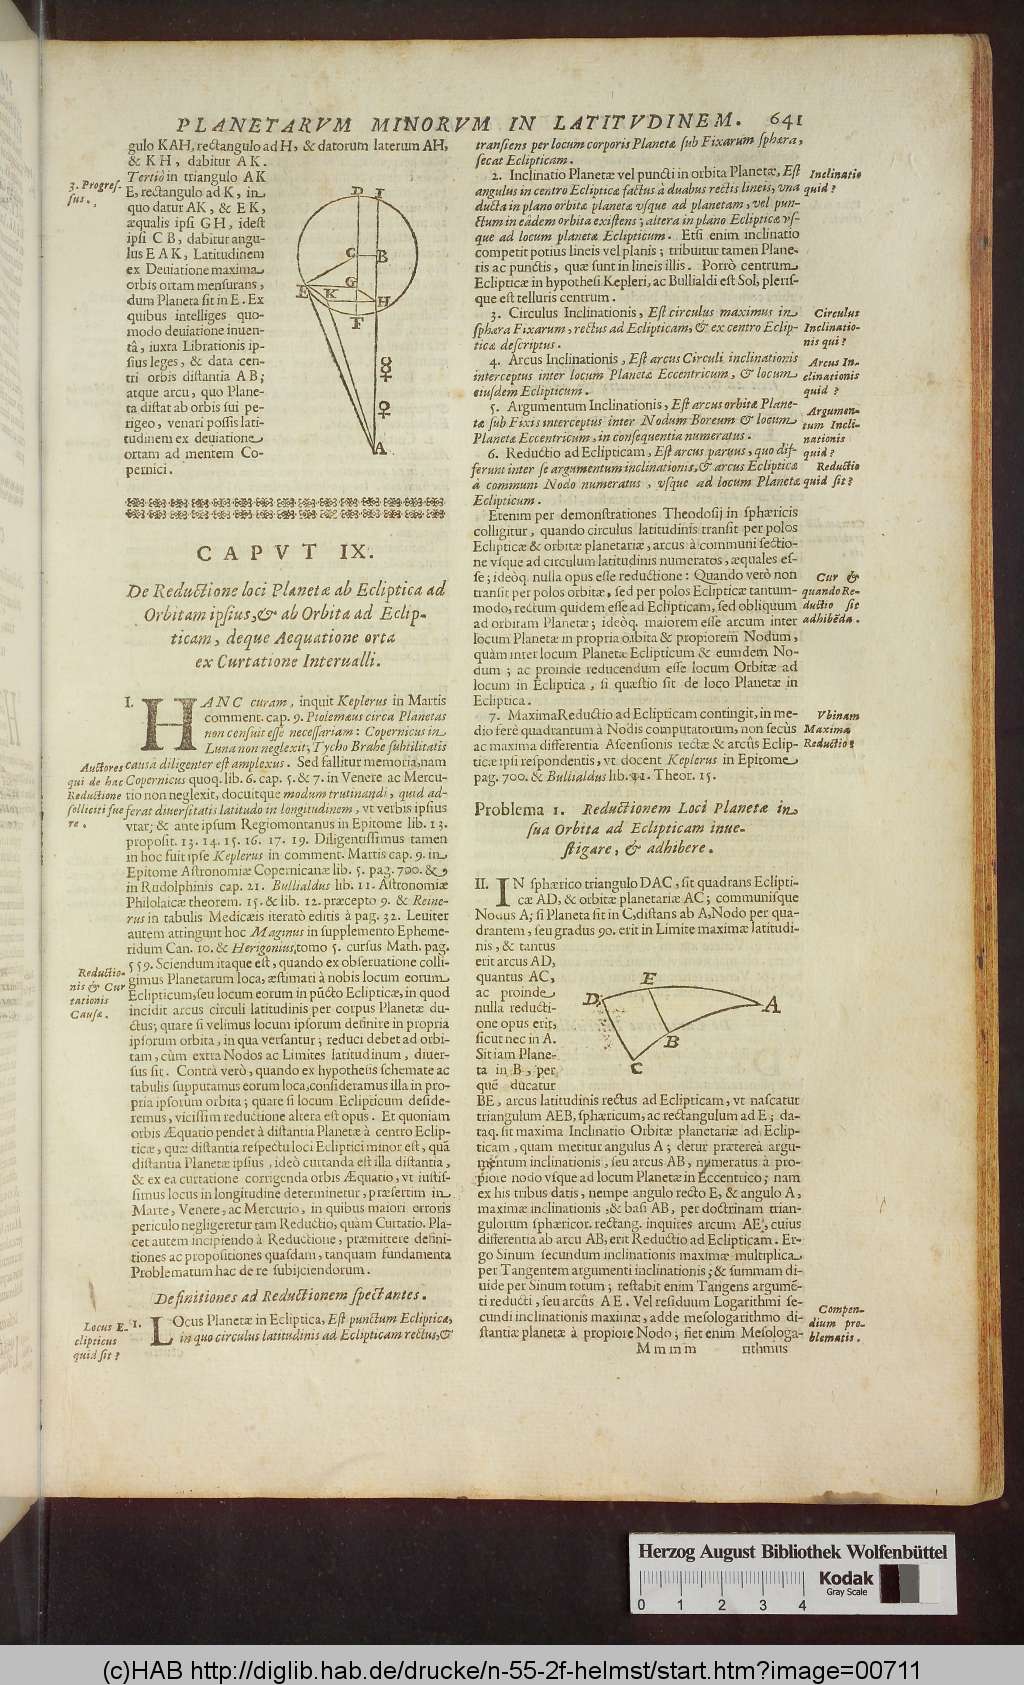 PLANETARVM MINORVM IN LATITVDINEM. 641
gulo KAH, rectangulo ad H, & datorum laterum AH,
& KH, dabitur AK.
3. Progres-
sus.
Tertiò in triangulo AK
E, rectangulo ad K, in
quo datur AK, & EK,
æqualis ipsi GH, idest
ipsi CB, dabitur angu-
lus EAK, Latitudinem
ex Deuiatione maxima
orbis ortam mensurans,
dum Planeta sit in E. Ex
quibus intelliges quo-
modo deuiatione inuen-
tâ, iuxta Librationis ip-
sius leges, & data cen-
tri orbis distantia AB;
atque arcu, quo Plane-
ta distat ab orbis sui pe-
rigeo, venari possis lati-
tudinem ex deuiatione
ortam ad mentem Co-
pernici.
D I
C B
G
E K H
F
☿
♀
A
CAPVT IX.
De Reductione loci Planetæ ab Ecliptica ad
Orbitam ipsius, & ab Orbita ad Eclip-
ticam, deque Aequatione orta
ex Curtatione Interualli.
I. HANC curam, inquit Keplerus in Martis
comment. cap. 9. Ptolemæus circa Planetas
non censuit esse necessariam: Copernicus in
Luna non neglexit, Tycho Brahe subtilitatis
causâ diligenter est amplexus. Sed fallitur memoria, nam
Copernicus quoq. lib. 6. cap. 5. & 7. in Venere ac Mercu-
rio non neglexit, docuitque modum trutinandi, quid ad-
ferat diuersitatis latitudo in longitudinem, vt verbis ipsius
vtar; & ante ipsum Regiomontanus in Epitome lib. 13.
proposit. 13. 14. 15. 16. 17. 19. Diligentissimus tamen
in hoc fuit ipse Keplerus in comment. Martis cap. 9. in
Epitome Astronomiæ Copernicanæ lib. 5. pag. 700. &
in Rudolphinis cap. 21. Bullialdus lib. 11. Astronomiæ
Philolaicæ theorem. 15. & lib. 12. præcepto 9. & Reine-
rus in tabulis Medicæis iteratò editis à pag. 32. Leuiter
autem attingunt hoc Maginus in supplemento Epheme-
ridum Can. 10. & Herigonius, tomo 5. cursus Math. pag.
559. Sciendum itaque est, quando ex obseruatione colli-
gimus Planetarum loca, æstimari à nobis locum eorum
Eclipticum, seu locum eorum in pũcto Eclipticæ, in quod
incidit arcus circuli latitudinis per corpus Planetæ du-
ctus; quare si velimus locum ipsorum definire in propria
ipsorum orbita, in qua versantur; reduci debet ad orbi-
tam, cùm extra Nodos ac Limites latitudinum, diuer-
sus sit. Contrà verò, quando ex hypothesis schemate ac
tabulis supputamus eorum loca, consideramus illa in pro-
pria ipsorum orbita; quare si locum Eclipticum deside-
remus, vicissim reductione altera est opus. Et quoniam
orbis Æquatio pendet à distantia Planetæ à centro Eclip-
ticæ, quæ distantia respectu loci Ecliptici minor est, quã
distantia Planetæ ipsius, ideò curtanda est illa distantia,
& ex ea curtatione corrigenda orbis Æquatio, vt iustis-
simus locus in longitudine determinetur, præsertim in
Marte, Venere, ac Mercurio, in quibus maiori erroris
periculo negligeretur tam Reductio, quàm Curtatio. Pla-
cet autem incipiendo à Reductione, præmittere defini-
tiones ac propositiones quasdam, tanquam fundamenta
Problematum hac de re subijciendorum.
Auctores
qui de hac
Reductione
solliciti fue
re.
Reductio-
nis & Cur
tationis
Causæ.
Definitiones ad Reductionem spectantes.
Locus E-
clipticus
quid sit?
1. LOcus Planetæ in Ecliptica, Est punctum Eclipticæ,
in quo circulus latitudinis ad Eclipticam rectus, &
transiens per locum corporis Planetæ sub Fixarum sphæra,
secat Eclipticam.
2. Inclinatio Planetæ vel puncti in orbita Planetæ, Est
angulus in centro Eclipticæ factus à duabus rectis lineis, vna
ducta in plano orbitæ planetæ vsque ad planetam, vel pun-
ctum in eâdem orbita existens; altera in plano Eclipticæ vs-
que ad locum planetæ Eclipticum. Etsi enim inclinatio
competit potius lineis vel planis; tribuitur tamen Plane-
tis ac punctis, quæ sunt in lineis illis. Porrò centrum
Eclipticæ in hypothesi Kepleri, ac Bullialdi est Sol; pleris-
que est telluris centrum.
3. Circulus Inclinationis, Est circulus maximus in
sphæra Fixarum, rectus ad Eclipticam, & ex centro Eclip-
ticæ descriptus.
4. Arcus Inclinationis, Est arcus Circuli inclinationis
interceptus inter locum Planetæ Eccentricum, & locum
eiusdem Eclipticum.
5. Argumentum Inclinationis, Est arcus orbitæ Plane-
tæ sub Fixis interceptus inter Nodum Boreum & locum
Planetæ Eccentricum, in consequentia numeratus.
6. Reductio ad Eclipticam, Est arcus paruus, quo dif-
ferunt inter se argumentum inclinationis, & arcus Eclipticæ
à communi Nodo numeratus, vsque ad locum Planetæ
Eclipticum.
Etenim per demonstrationes Theodosij in sphæricis
colligitur, quando circulus latitudinis transit per polos
Eclipticæ & orbitæ planetariæ, arcus à communi sectio-
ne vsque ad circulum latitudinis numeratos, æquales es-
se; ideòq. nulla opus esse reductione: Quando verò non
transit per polos orbitæ, sed per polos Eclipticæ tantum-
modo, rectum quidem esse ad Eclipticam, sed obliquum
ad orbitam Planetæ; ideòq. maiorem esse arcum inter
locum Planetæ in propria orbita & propiorem Nodum,
quàm inter locum Planetæ Eclipticum & eumdem No-
dum; ac proinde reducendum esse locum Orbitæ ad
locum in Ecliptica, si quæstio sit de loco Planetæ in
Ecliptica.
7. Maxima Reductio ad Eclipticam contingit, in me-
dio ferè quadrantum à Nodis computatorum, non secùs
ac maxima differentia Ascensionis rectæ & arcûs Eclip-
ticæ ipsi respondentis, vt docent Keplerus in Epitome
pag. 700. & Bullialdus lib. 11. Theor. 15.
Inclinatio
quid?
Circulus
Inclinatio-
nis qui?
Arcus In-
clinationis
quid?
Argumen-
tum Incli-
nationis
quid?
Reductio
quid sit?
Cur &
quando Re-
ductio sit
adhibẽda.
Vbinam
Maxima
Reductio?
Problema 1. Reductionem Loci Planetæ in
sua Orbita ad Eclipticam inue-
stigare, & adhibere.
II. IN sphærico triangulo DAC, sit quadrans Eclipti-
cæ AD, & orbitæ planetariæ AC; communisque
Nodus A; si Planeta sit in C, distans ab A, Nodo per qua-
drantem, seu gradus 90. erit in Limite maximæ latitudi-
nis, & tantus
erit arcus AD,
quantus AC,
ac proinde
nulla reducti-
one opus erit,
sicut nec in A.
Sit iam Plane-
ta in B, per
quẽ ducatur
D E A
B
C
BE, arcus latitudinis rectus ad Eclipticam, vt nascatur
triangulum AEB, sphæricum, ac rectangulum ad E; da-
taq. sit maxima Inclinatio Orbitæ planetariæ ad Eclip-
ticam, quam metitur angulus A; detur præterea argu-
mentum inclinationis, seu arcus AB, numeratus à pro-
piore nodo vsque ad locum Planetæ in Eccentrico; nam
ex his tribus datis, nempe angulo recto E, & angulo A,
maximæ inclinationis, & basi AB, per doctrinam trian-
gulorum sphæricor. rectang. inquires arcum AE, cuius
differentia ab arcu AB, erit Reductio ad Eclipticam. Er-
go Sinum secundum inclinationis maximæ multiplica
per Tangentem argumenti inclinationis; & summam di-
uide per Sinum totum; restabit enim Tangens argumẽ-
ti reducti, seu arcûs AE. Vel residuum Logarithmi se-
cundi inclinationis maximæ, adde mesologarithmo di-
stantiæ planetæ à propiore Nodo; fiet enim Mesologa-
Compen-
dium pro-
blematis.
Mmmm rithmus
Herzog August Bibliothek Wolfenbüttel
Kodak
Gray Scale
0 1 2 3 4
(c)HAB http://diglib.hab.de/drucke/n-55-2f-helmst/start.htm?image=00711